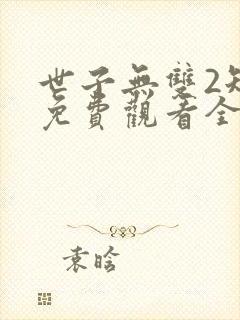 世子無雙2
免費觀看全
袁晗